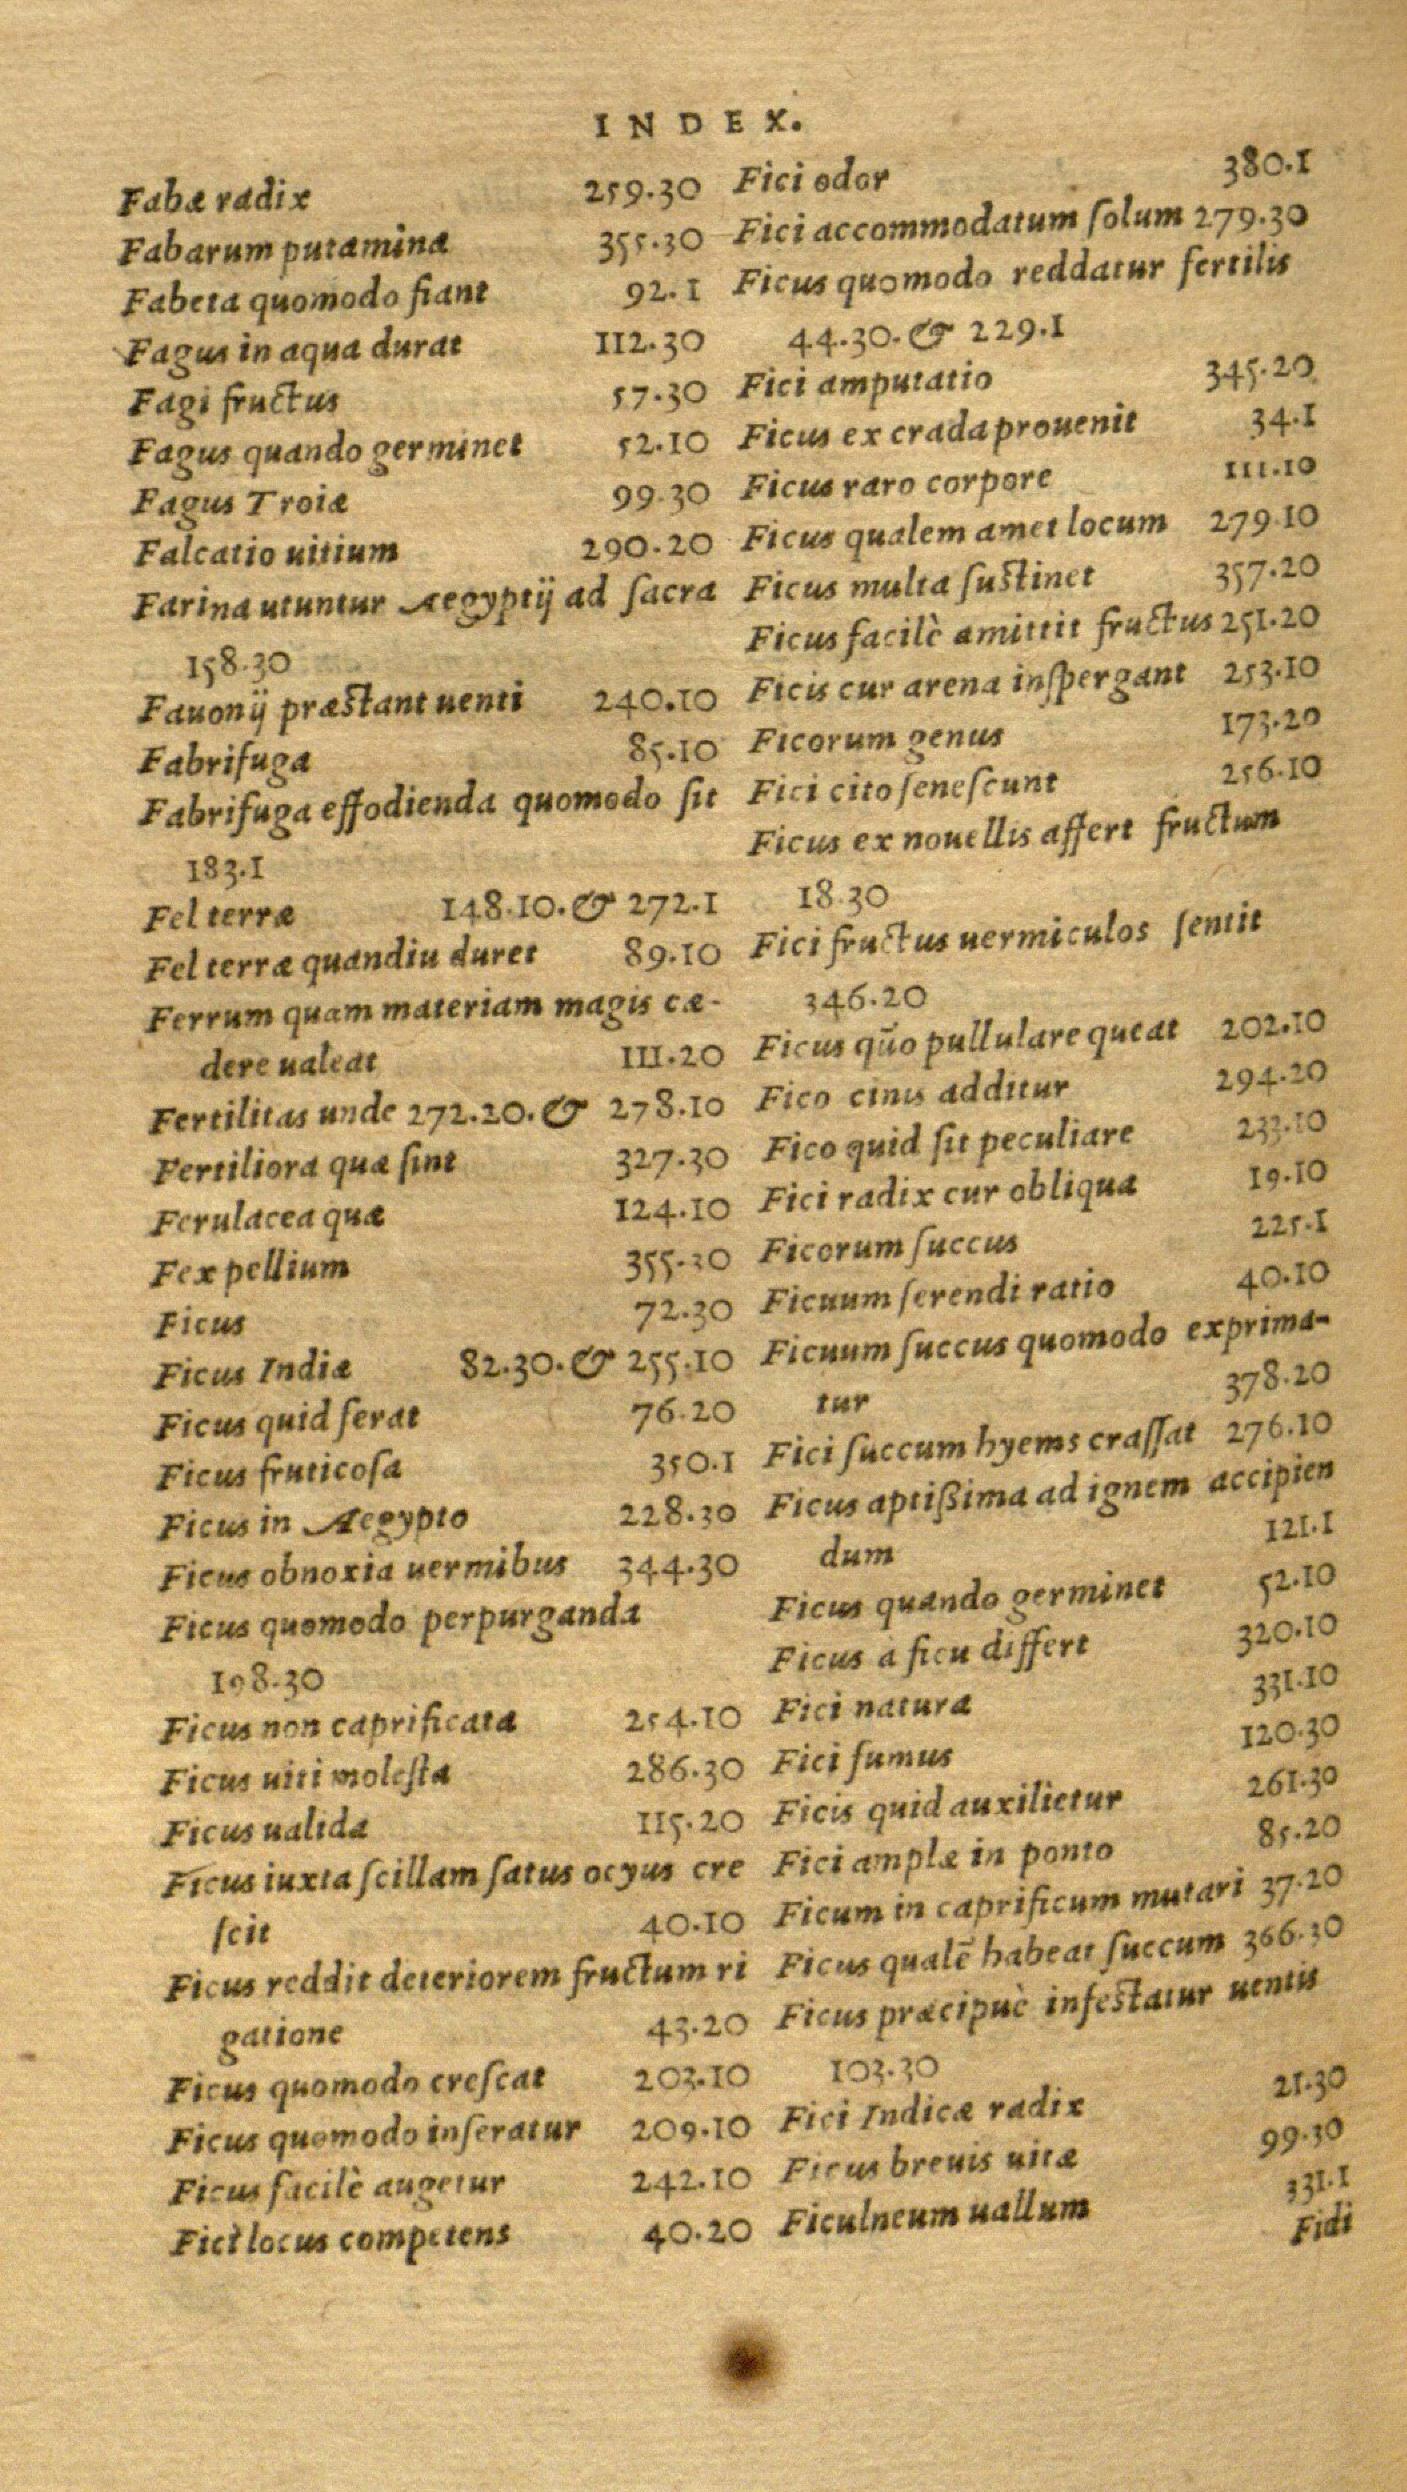 INDEX.
Fabæ radix 259.30
Fabarum putamina 355.30
Fabeta quomodo fiant 92.1
Fagus in aqua durat 112.30
Fagi fructus 57.30
Fagus quando germinet 52.10
Fagus Troiæ 99.30
Falcatio uitium 290.20
Farina utuntur Aegyptij ad ſacra
158.30
Fauonij præstant uenti 240.10
Fabrifuga 85.10
Fabrifuga effodienda quomodo ſit
183.1
Fel terræ 148.10. & 272.1
Fel terræ quandiu duret 89.10
Ferrum quam materiam magis cæ-
dere ualeat 111.20
Fertilitas unde 272.20. & 278.10
Fertiliora quæ ſint 327.30
Ferulacea quæ 124.10
Fex pellium 355.30
Ficus 72.30
Ficus Indiæ 82.30. & 255.10
Ficus quid ferat 76.20
Ficus fruticoſa 350.1
Ficus in Aegypto 228.30
Ficus obnoxia uermibus 344.30
Ficus quomodo perpurganda
198.30
Ficus non caprificata 254.10
Ficus uiti moleſta 286.30
Ficus ualida 115.20
Ficus iuxta ſcillam ſatus ocyus cre
ſcit 40.10
Ficus reddit deteriorem fructum ri
gatione 43.20
Ficus quomodo creſcat 203.10
Ficus quomodo inſeratur 209.10
Ficus facilè augetur 242.10
Fici locus competens 40.20
Fici odor 380.1
Fici accommodatum ſolum 279.30
Ficus quomodo reddatur fertilis
44.30. & 229.1
Fici amputatio 345.20
Ficus ex crada prouenit 34.1
Ficus raro corpore 111.10
Ficus qualem amet locum 279.10
Ficus multa ſustinet 357.20
Ficus facilè amittit fructus 251.20
Ficis cur arena inſpergant 253.10
Ficorum genus 173.20
Fici cito ſeneſcunt 256.10
Ficus ex nouellis affert fructum
18.30
Fici fructus uermiculos ſentit
346.20
Ficus quō pullulare queat 202.10
Fico cinis additur 294.20
Fico quid ſit peculiare 233.10
Fici radix cur obliqua 19.10
Ficorum ſuccus 225.1
Ficuum ſerendi ratio 40.10
Ficuum ſuccus quomodo exprima-
tur 378.20
Fici ſuccum hyems craſſat 276.10
Ficus aptißima ad ignem accipien
dum 121.1
Ficus quando germinet 52.10
Ficus à ficu differt 320.10
Fici natura 331.10
Fici fumus 120.30
Ficis quid auxilietur 261.30
Fici amplæ in ponto 85.20
Ficum in caprificum mutari 37.20
Ficus qualē habeat ſuccum 366.30
Ficus præcipuè infestatur uentis
103.30
Fici Indicæ radix 21.30
Ficus breuis uitæ 99.30
Ficulneum uallum 331.1
Fidi